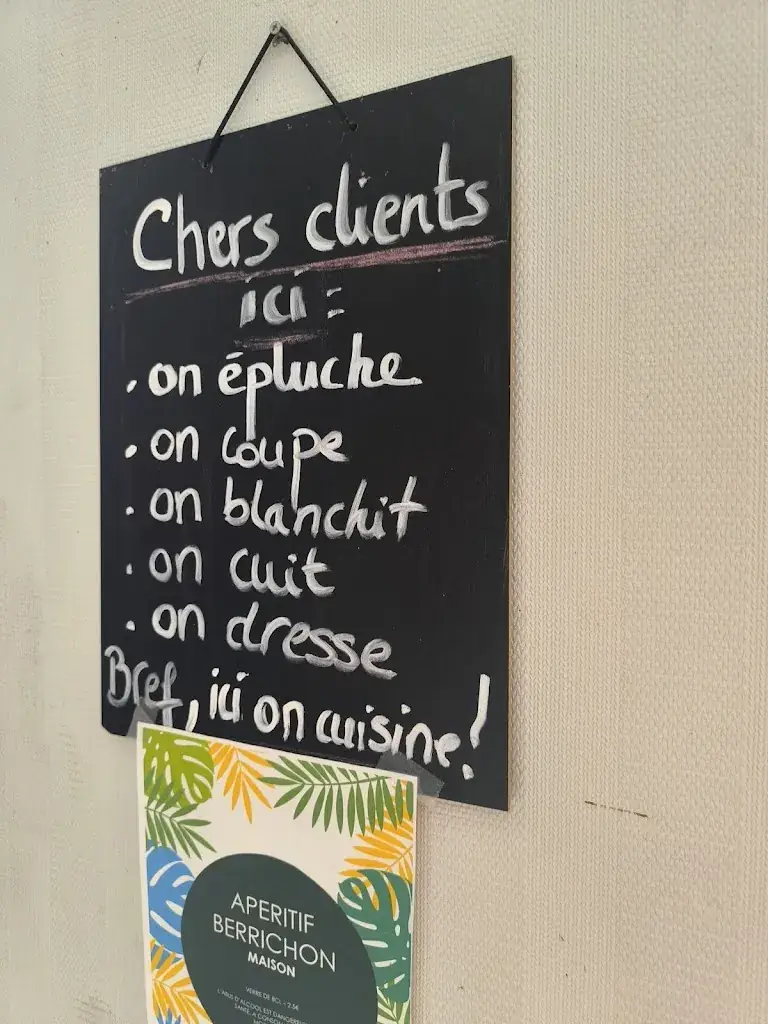 Chers clients
ici :
. on épluche
. on coupe
. on blanchit
. on cuit
. on dresse
Bref, ici on cuisine !
APERITIF
BERRICHON
MAISON
VERRE DE 8CL - 2.5€
L'ABUS D'ALCOOL EST DANGEREUX
SANTE, A CONSO